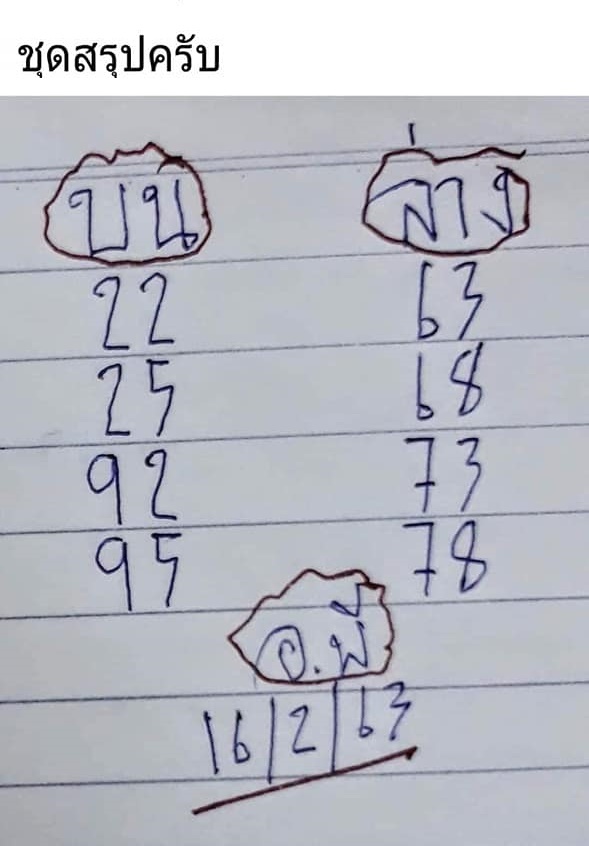 ชุดสรุปครับ
บน ล่าง
22 63
25 68
92 73
95 78
อ.พี่
16/2/63